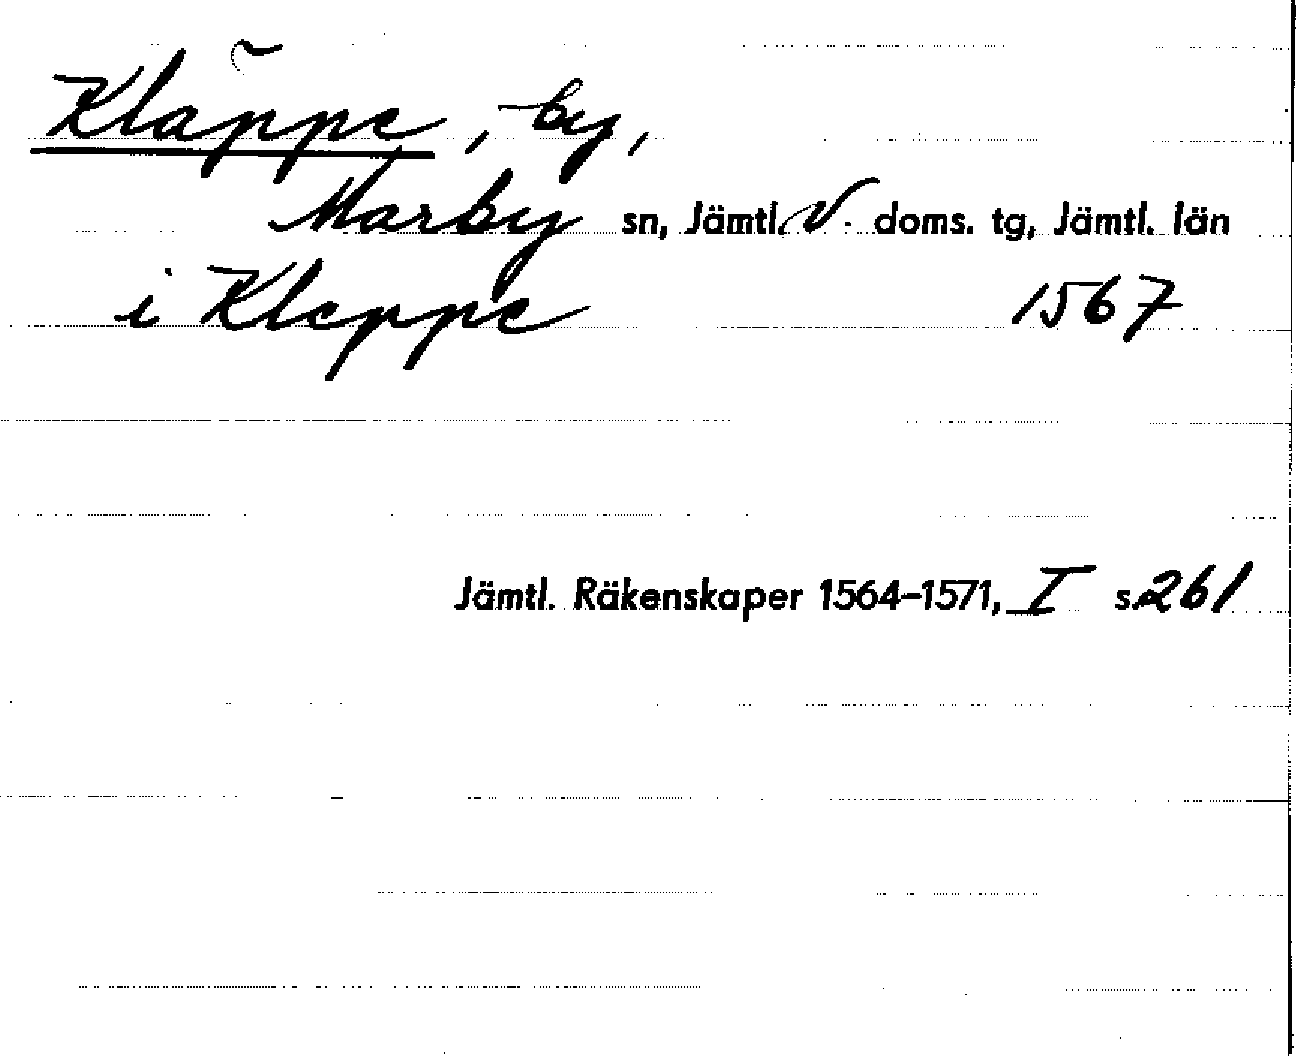 Kläppe, by,
Marby sn, Jämtl. V. doms. tg, Jämtl. län
i Kleppe 1567
Jämtl. Räkenskaper 1564–1571, I s. 261